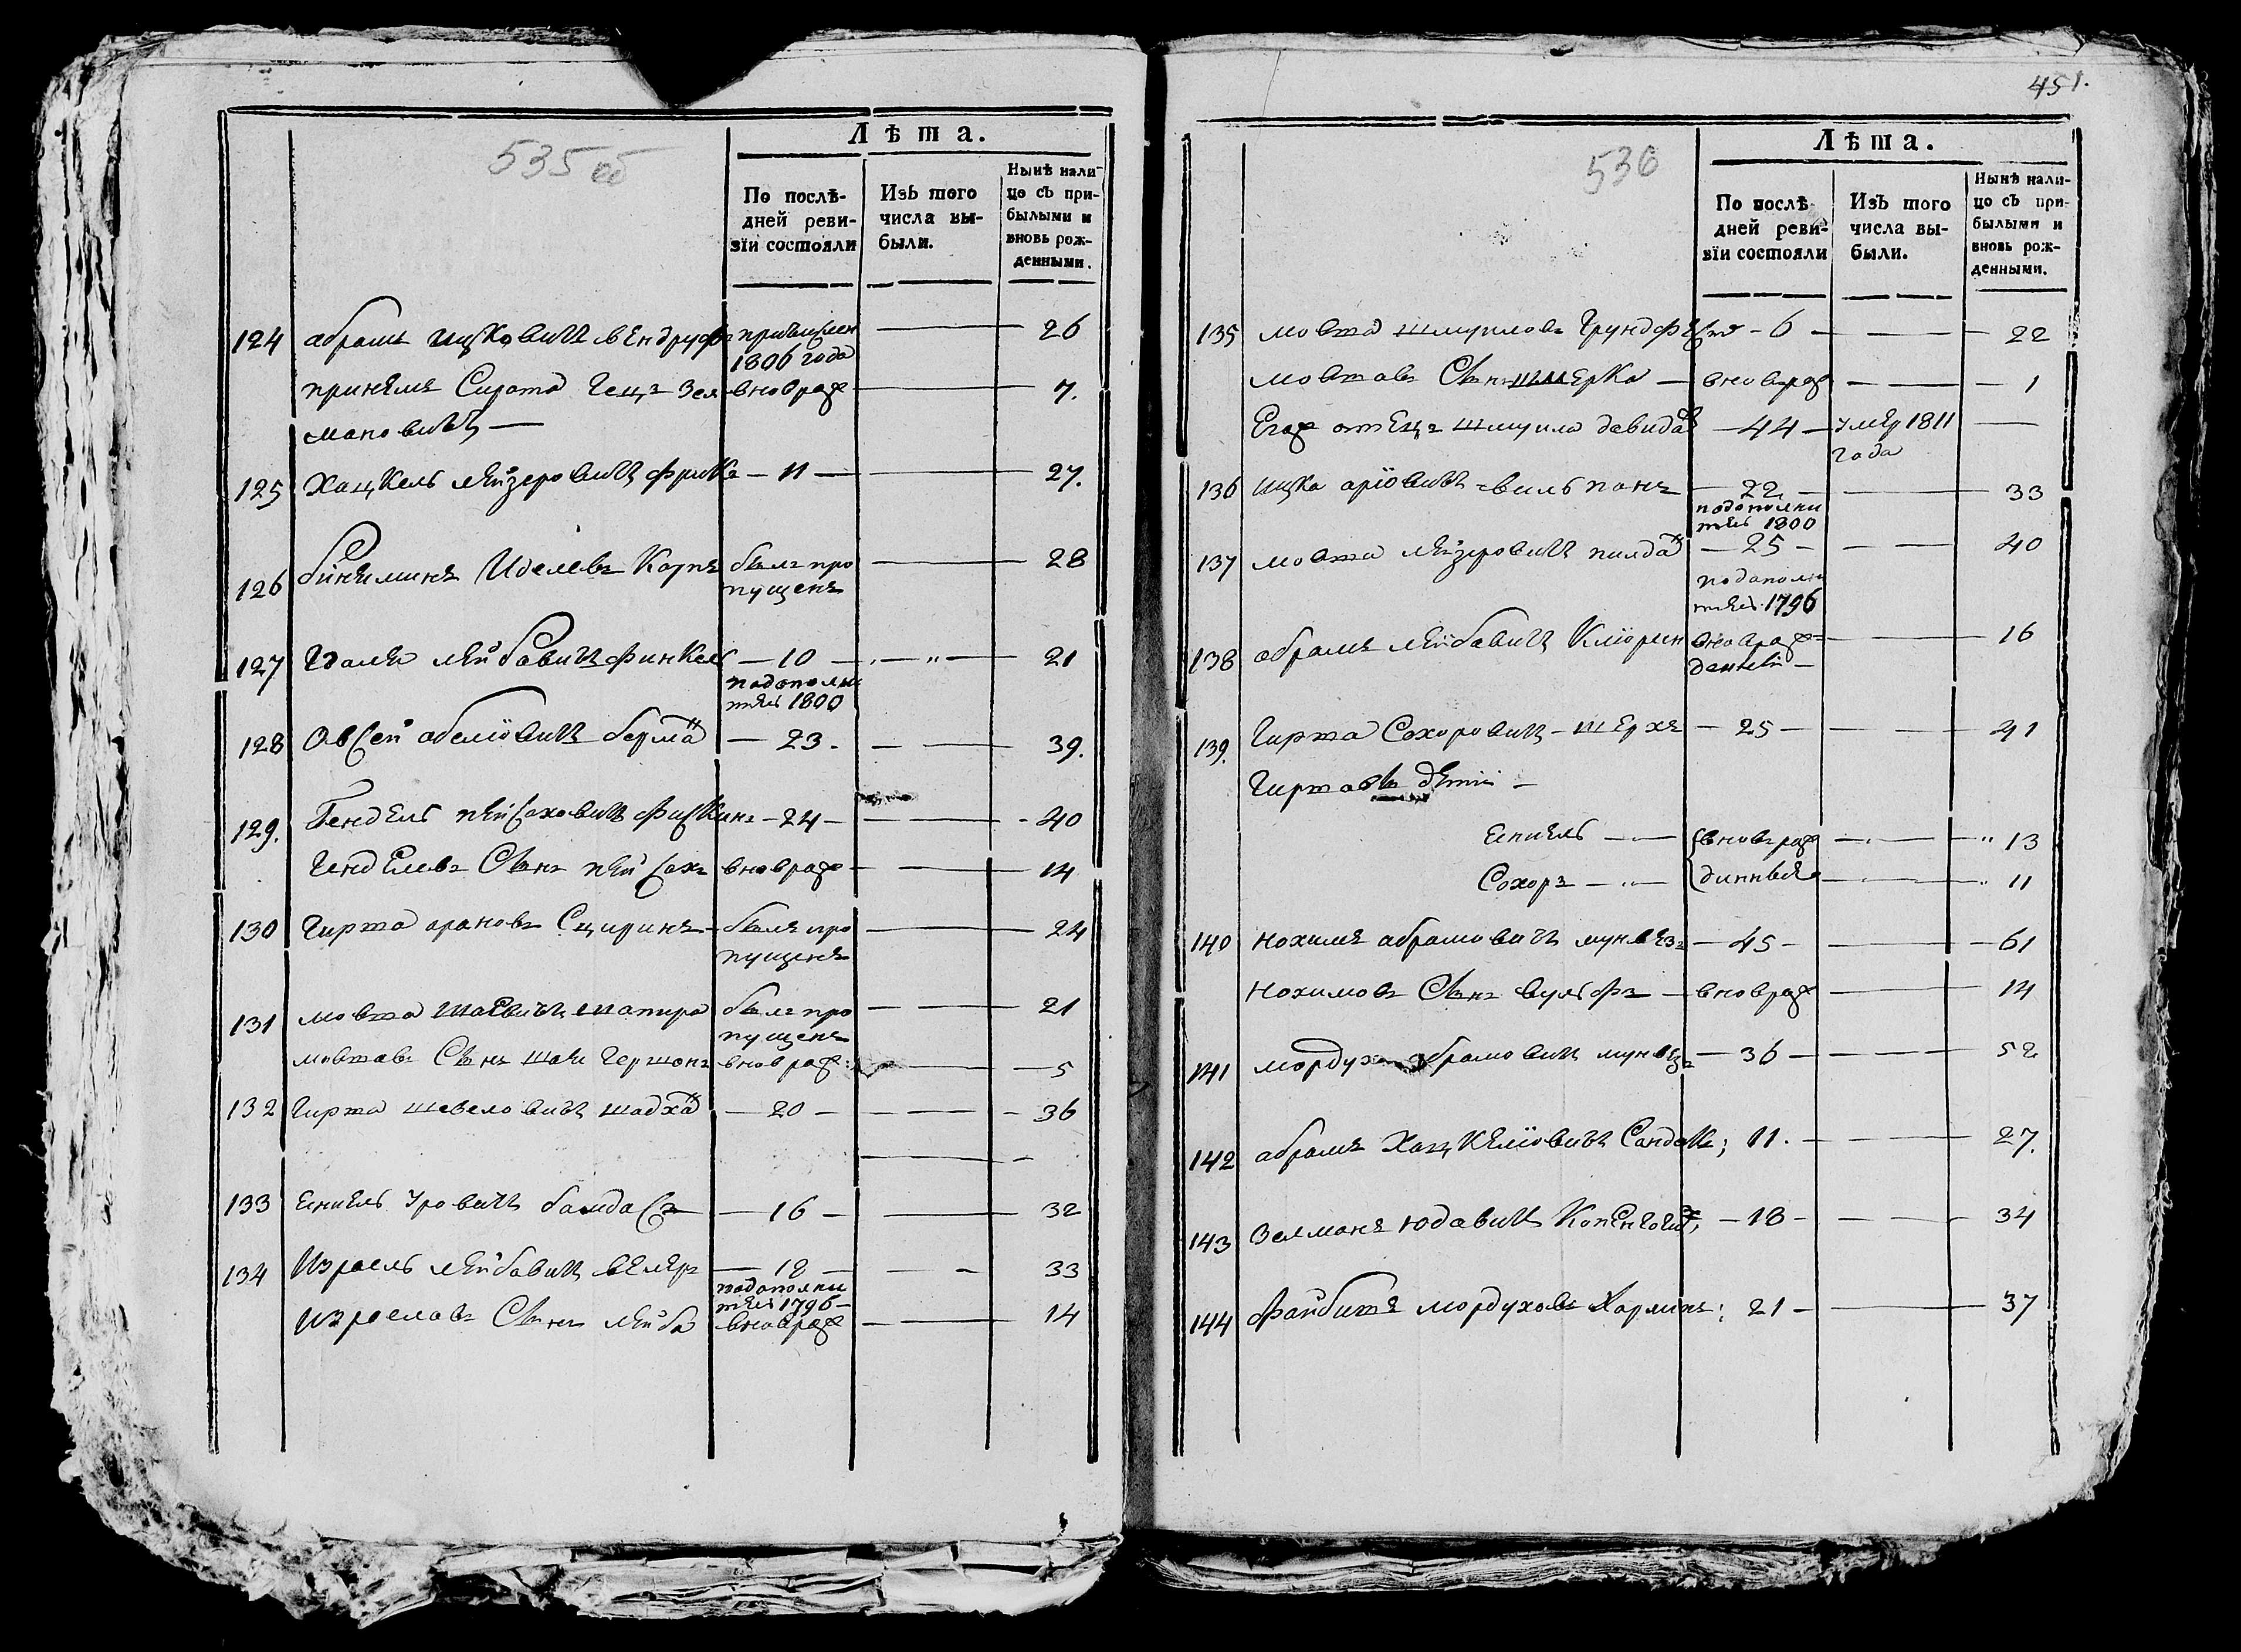 535 об
Лѣта.
По послѣ-
дней реви-
зїи состояли
Изъ того
числа вы-
были.
Нынѣ нали-
цо съ при-
былыми и
вновь рож-
денными.
124 абрамъ ицковичъ вендруфъ причислен — 26
1806 года
принялъ Сирота Гецъ Зел вноврож — 7.
мановичъ —
125 Хацкель лейзеровичъ фрикъ — 11 — — 27.
126 бинеминъ Иделевъ Карпъ былъ про — 28
пущенъ
127 лейбовичъ финкел — 10 — — " — 21
подополни
тел 1800
128 Овсей абелїовичъ берма н — 23. — — 39.
129. Гендель пейсаховичъ фишкинъ — 24 — — — 40
Генделевъ Сынъ пейсахъ вноврож — — 14
130 Гирша ароновъ Сциринъ — былъ про — — 24
пущенъ
131 мовша шаевичъ шапира былъ про — — 21
пущенъ
мовшавъ Сынъ шаи Гершонъ вноврож — — 5
132 Гирша шевеловичъ шадха н — 20 — — — 36
— — —
133 Уровичъ — 16 — — — 32
134 Израель лейбавичъ велеръ — 18 — — — 33
подополни
тел 1796 —
израелавъ Сынъ лейба вноврож — — 14
451.
536
Лѣта.
По послѣ-
дней реви-
зїи состояли
Изъ того
числа вы-
были.
Нынѣ нали-
цо съ при-
былыми и
вновь рож-
денными.
135 мовша шмуиловъ Грундфест — 6 — — — 22
мовшавъ Сынъ шмерка — вноврож — — — 1
Егож отецъ шмуила давидав — 44 — умер 1811 —
года
136 ицка арїовичъ вильпанъ — 22 — — 33
подополни
тел 1800
137 мовша лейзеровичъ — 25 — — — 40
подополни
тел 1796
138 абрамъ лейбавичъ Клїорин вноврож — — 16
денней —
139. Гирша Сохоровичъ — шерхъ — 25 — — — 41
Гиршавы дети —
— — вноврож — — " 13
Сохоръ — " — динныя — — " 11
140 нохимъ абрамовичъ мунвезъ — 45 — — — 61
нохимовъ Сынъ вульфъ — вноврож — — 14
141 мордухъ абрамовичъ мунвезъ — 36 — — — 52
142 абрамъ Хацкелїовичъ Сандакъ; 11. — — 27.
143 Зелманъ Юдавичъ — 18 — — — 34
144 Файбишъ мордуховъ Кармин; 21 — — 37